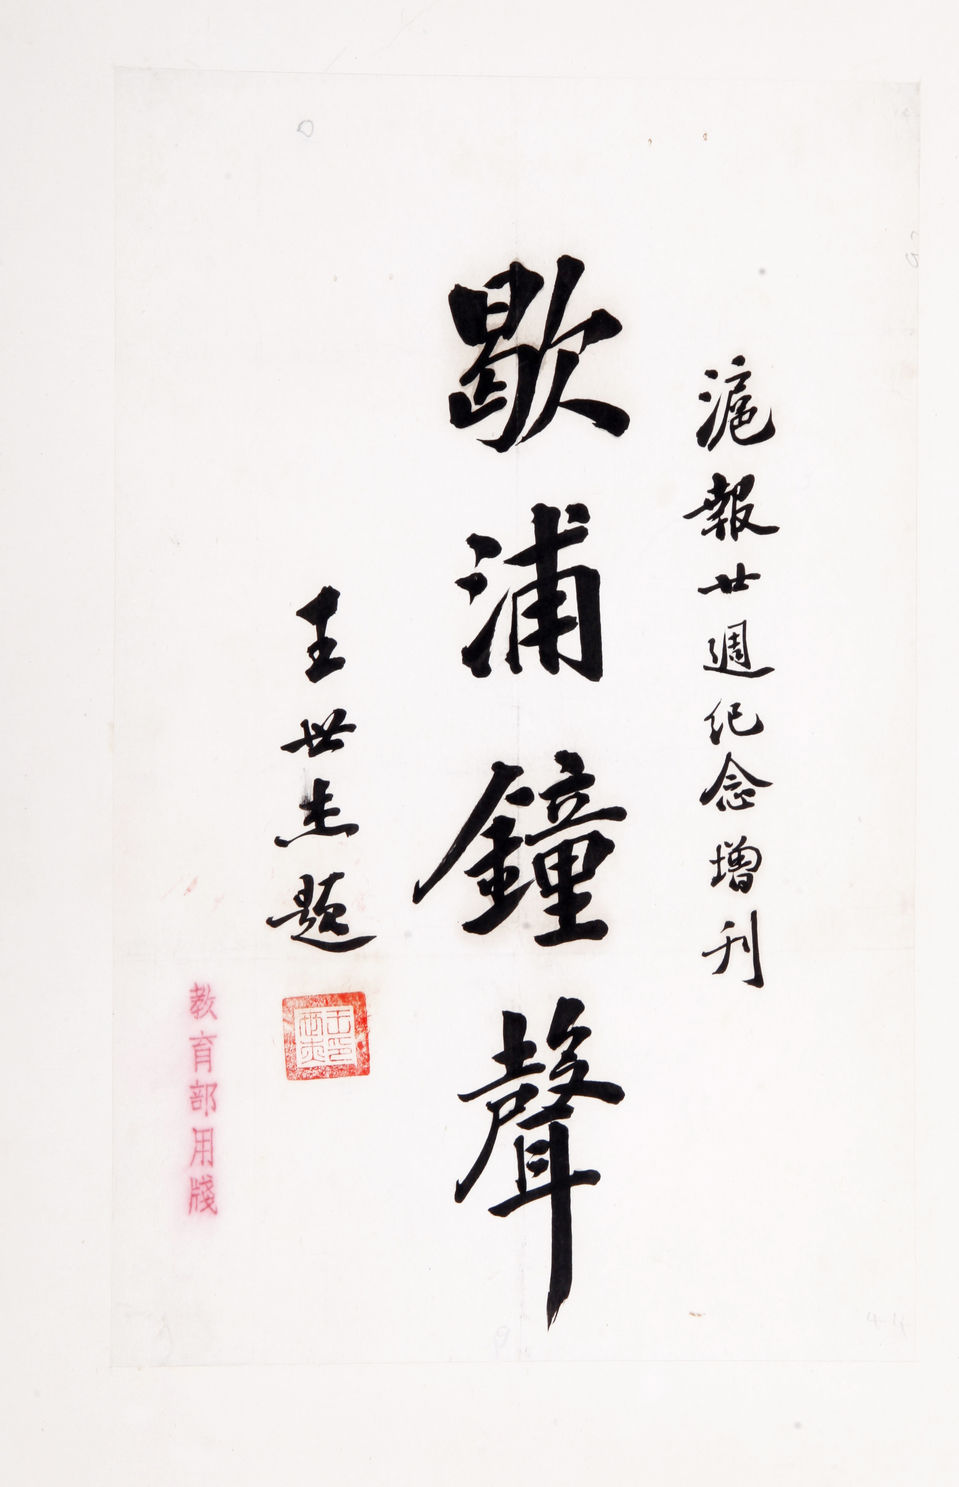 滬報廿週紀念增刊
歇浦鐘聲
王世杰題
教育部用牋